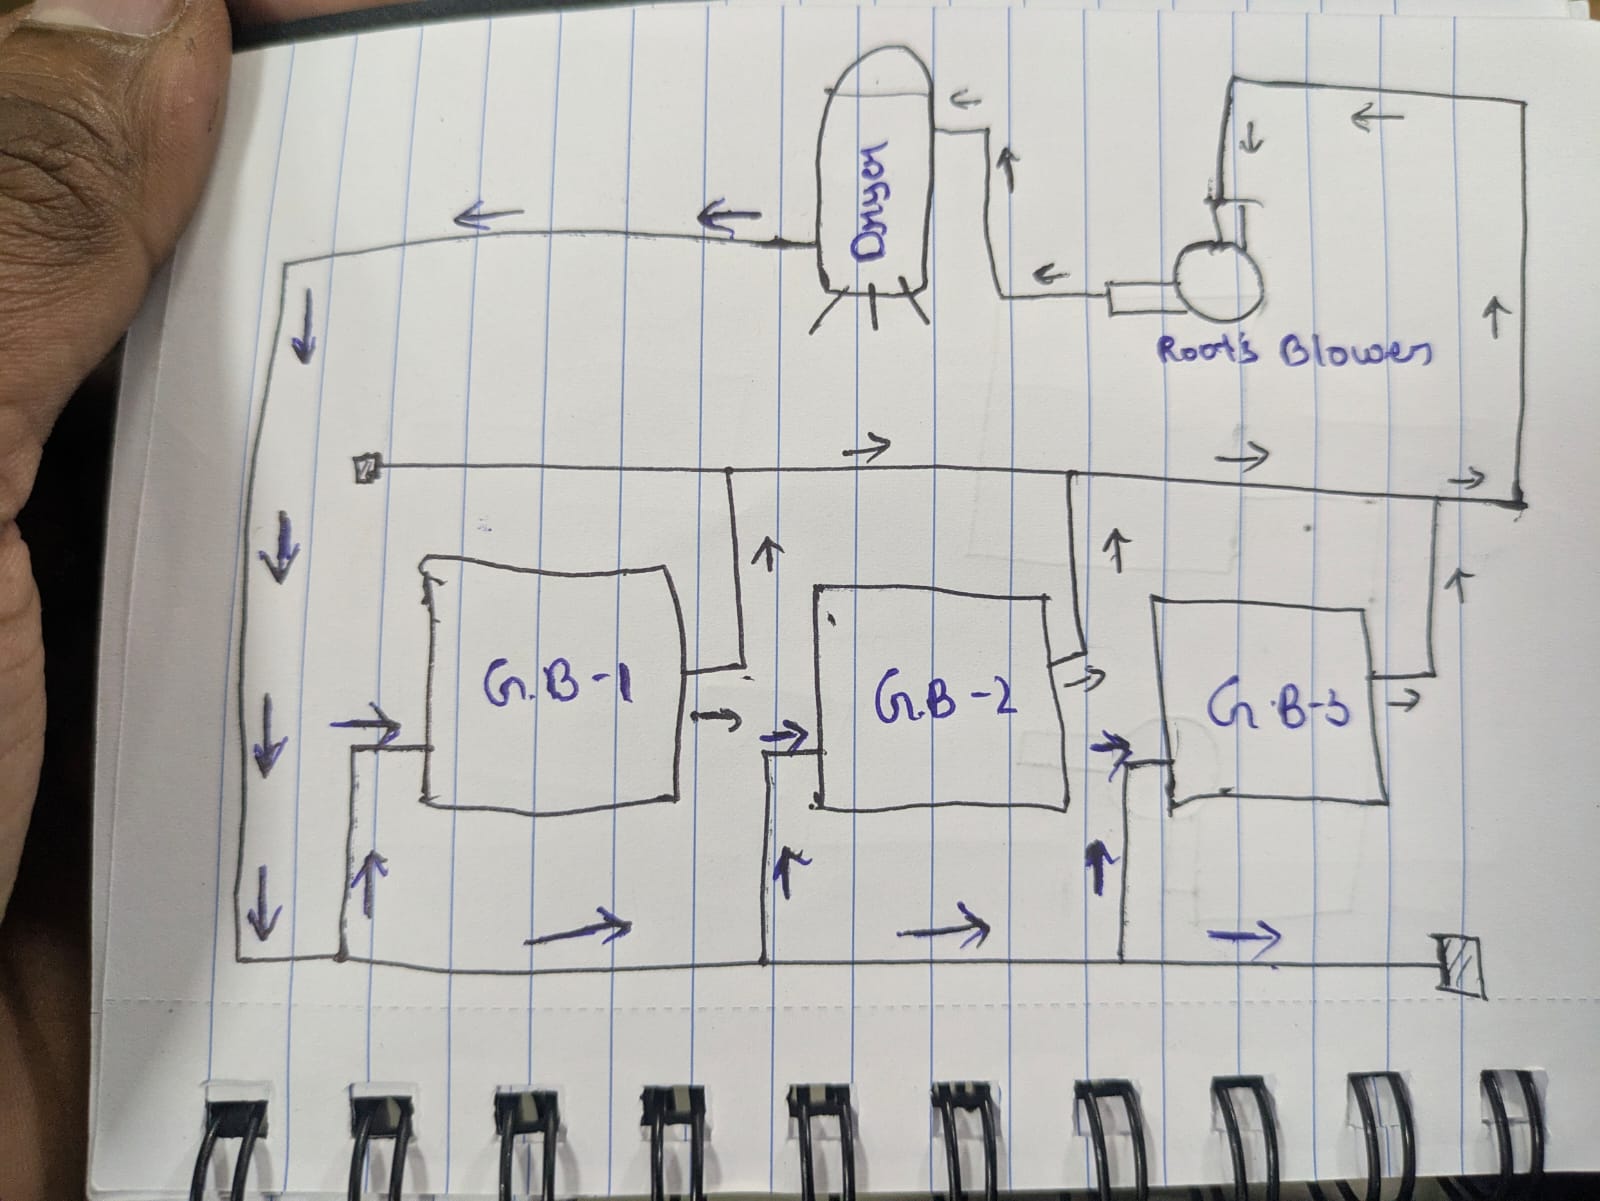 Dryer
Root's Blower
G.B-1
G.B-2
G.B-3